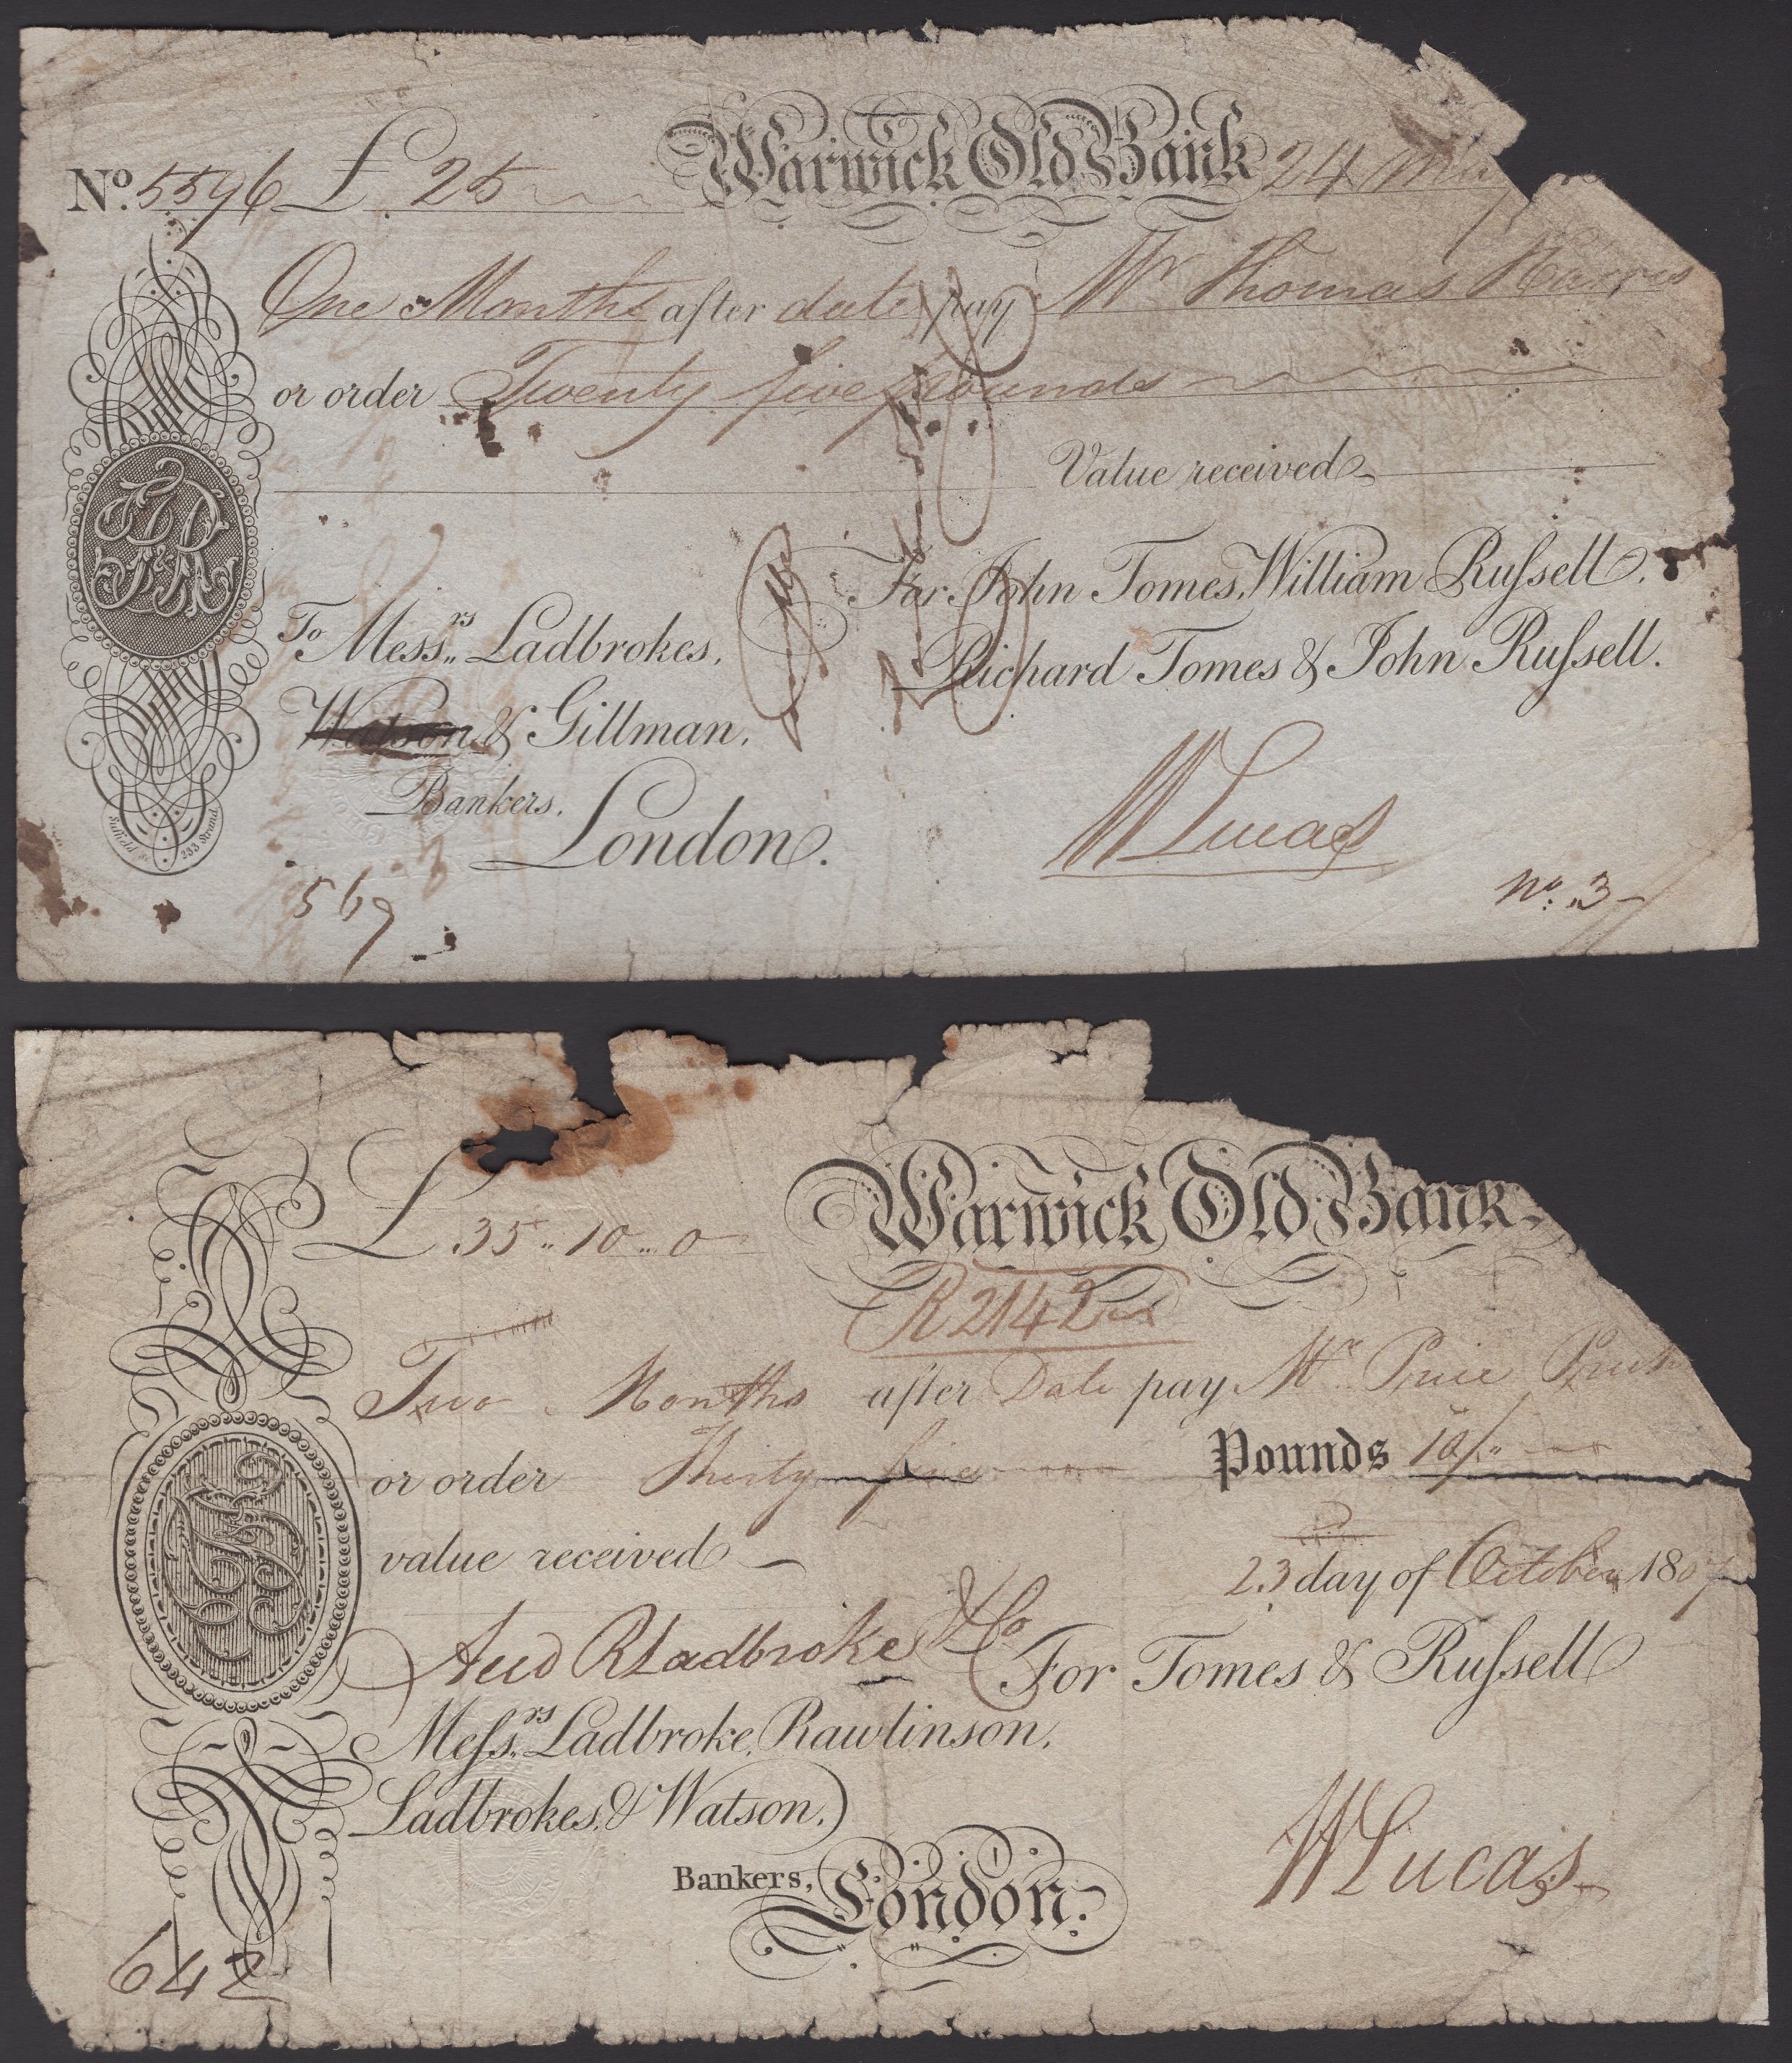 No. 5596 £ 25 Warwick Old Bank 24 May
One Months after date, pay Mr Thomas Harris
or order Twenty five pounds
Value received
For John Tomes, William Russell,
Richard Tomes & John Russell.
To Messrs. Ladbrokes,
Watson & Gillman,
Bankers,
London.
Suffield Sc. 233 Strand
W Lucas
569
No. 3
£ 35 .. 10 .. 0 Warwick Old Bank.
R2142
Two Months after Date pay Mr Price
or order Thirty five Pounds 10/.
value received
23 day of October 1807
R Ladbroke & Co
For Tomes & Russell
Messrs. Ladbroke, Rawlinson,
Ladbrokes, & Watson,
Bankers, London.
W Lucas
642